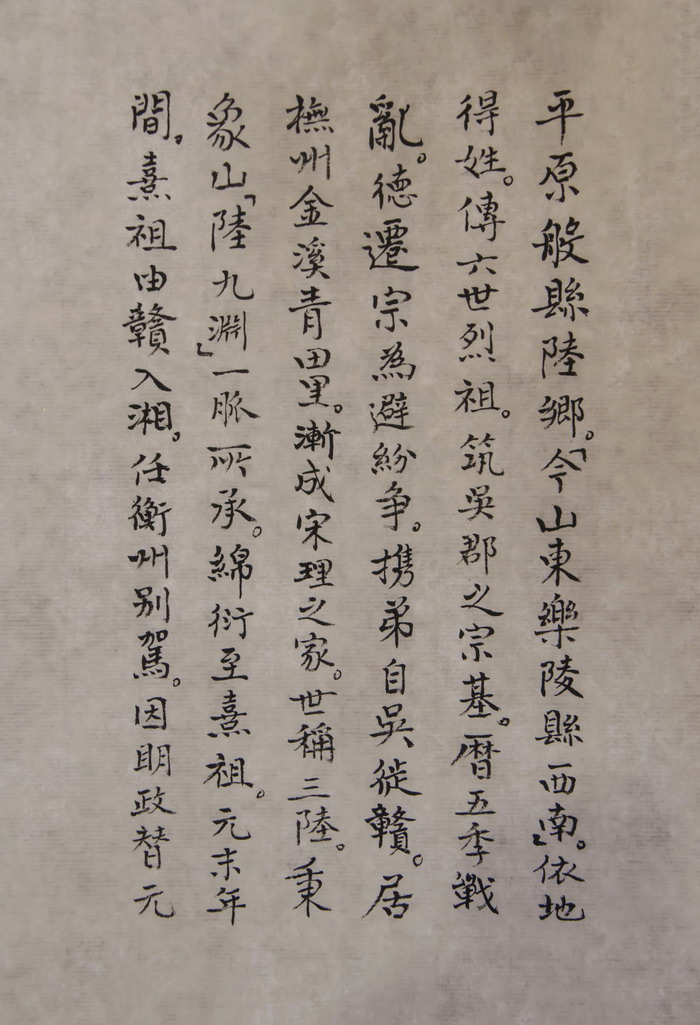 平原般縣陸鄉。「今山東樂陵縣西南」。依地
得姓。傳六世烈祖。筑吳郡之宗基。曆五季戰
亂。德遷宗為避紛争。携弟自吳徙贛。居
撫州金溪青田里。漸成宋理之家。世稱三陸。秉
象山「陸九淵」一脈所承。綿衍至熹祖。元末年
間。熹祖由贛入湘。任衡州别駕。因明政替元